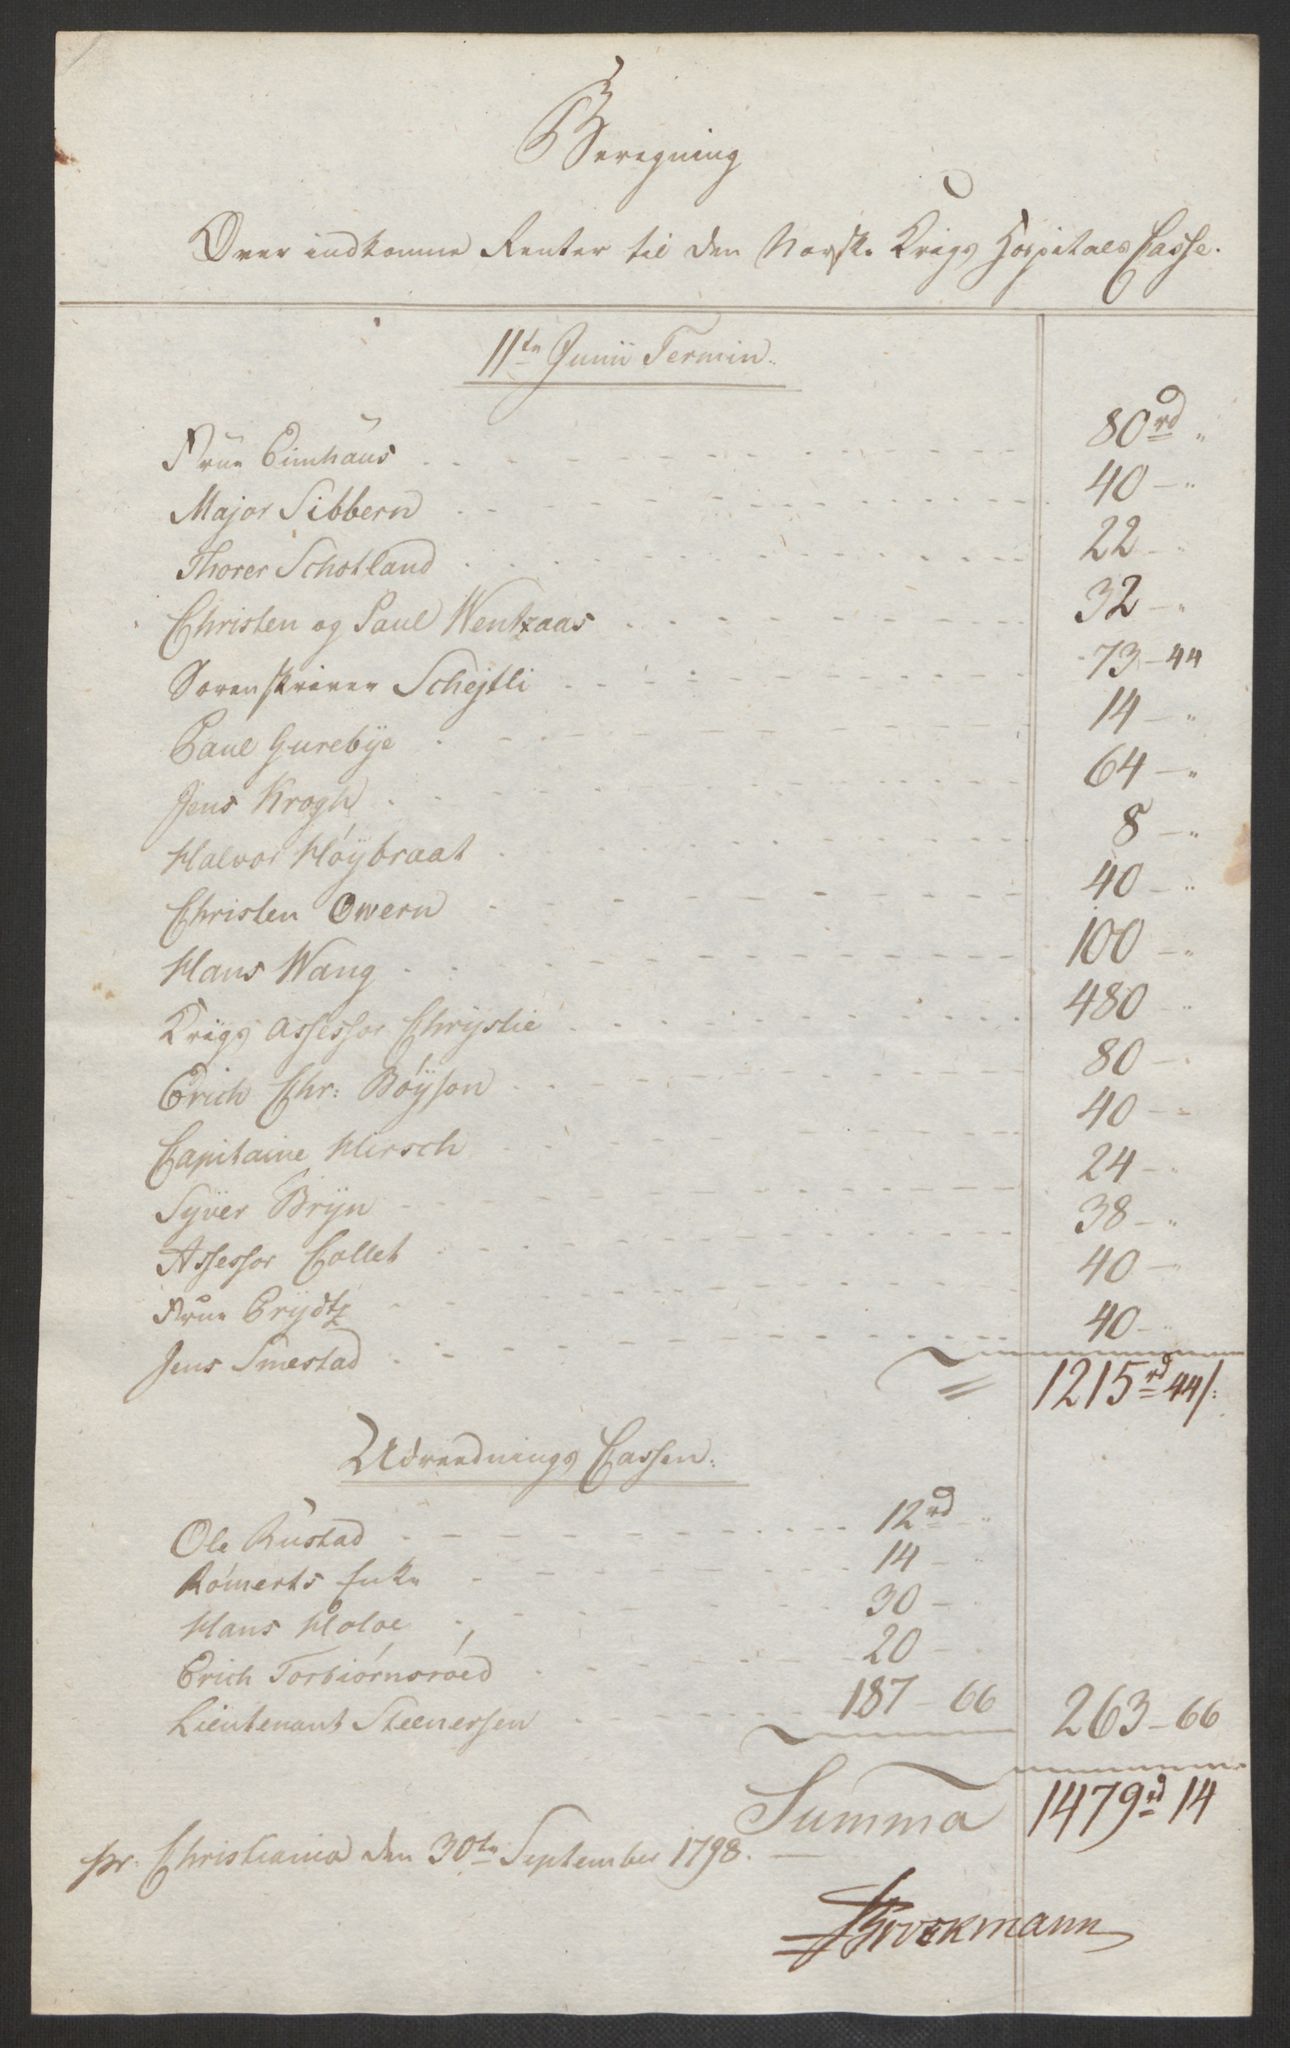 Beregning
Over indkomne Renter til den Norske Krigs Hospitals Casse.
11te Junii Termin.
Frue Eimhaus 80 rd "
Major Sibbern 40 - "
Thorer Schotland 22 - "
Christen og Paul Wentzaas 32 - "
Sorenskriver Schejtli 73 - 44
Paul Gurebÿe 14 - "
Jens Krogh 64 - "
Halvor Høÿbraat 8 - "
Christen Owern 40 - "
Hans Wang 100 - "
Krigs Assessor Chrystie 480 "
Erich Chr: Bøÿson 80 -
Capitaine Hirsch 40 - "
Syver Brÿn 24 - "
Assessor Collet 38 - "
Frue Erÿdtz 40 - "
Jens Smestad 40 - "
1215 rd 44/:
Udreednings Cassen:
Ole Rustad 12 rd "
Rømerts Enke 14 - "
Hans Holoe 30 -
Erich Torbiørnsrøed 20 -
Lieutenant Steenersen 187 - 66 263 - 66
Summa 1479 rd 14
pr. Christiania den 30te September 1798.
Brockmann